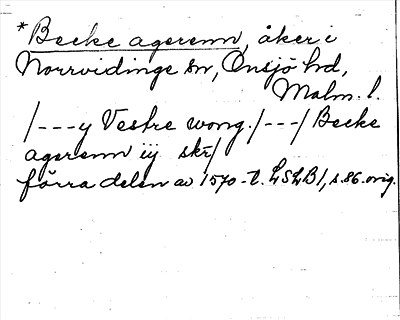 *Becke agerenn, åker i
Norrvidinge sn, Onsjö hd,
Malm. l.
/---y Vestre wong./---/ Becke
agerenn iij skr/
förra delen av 1570-t. LSLB1, s.86. orig.